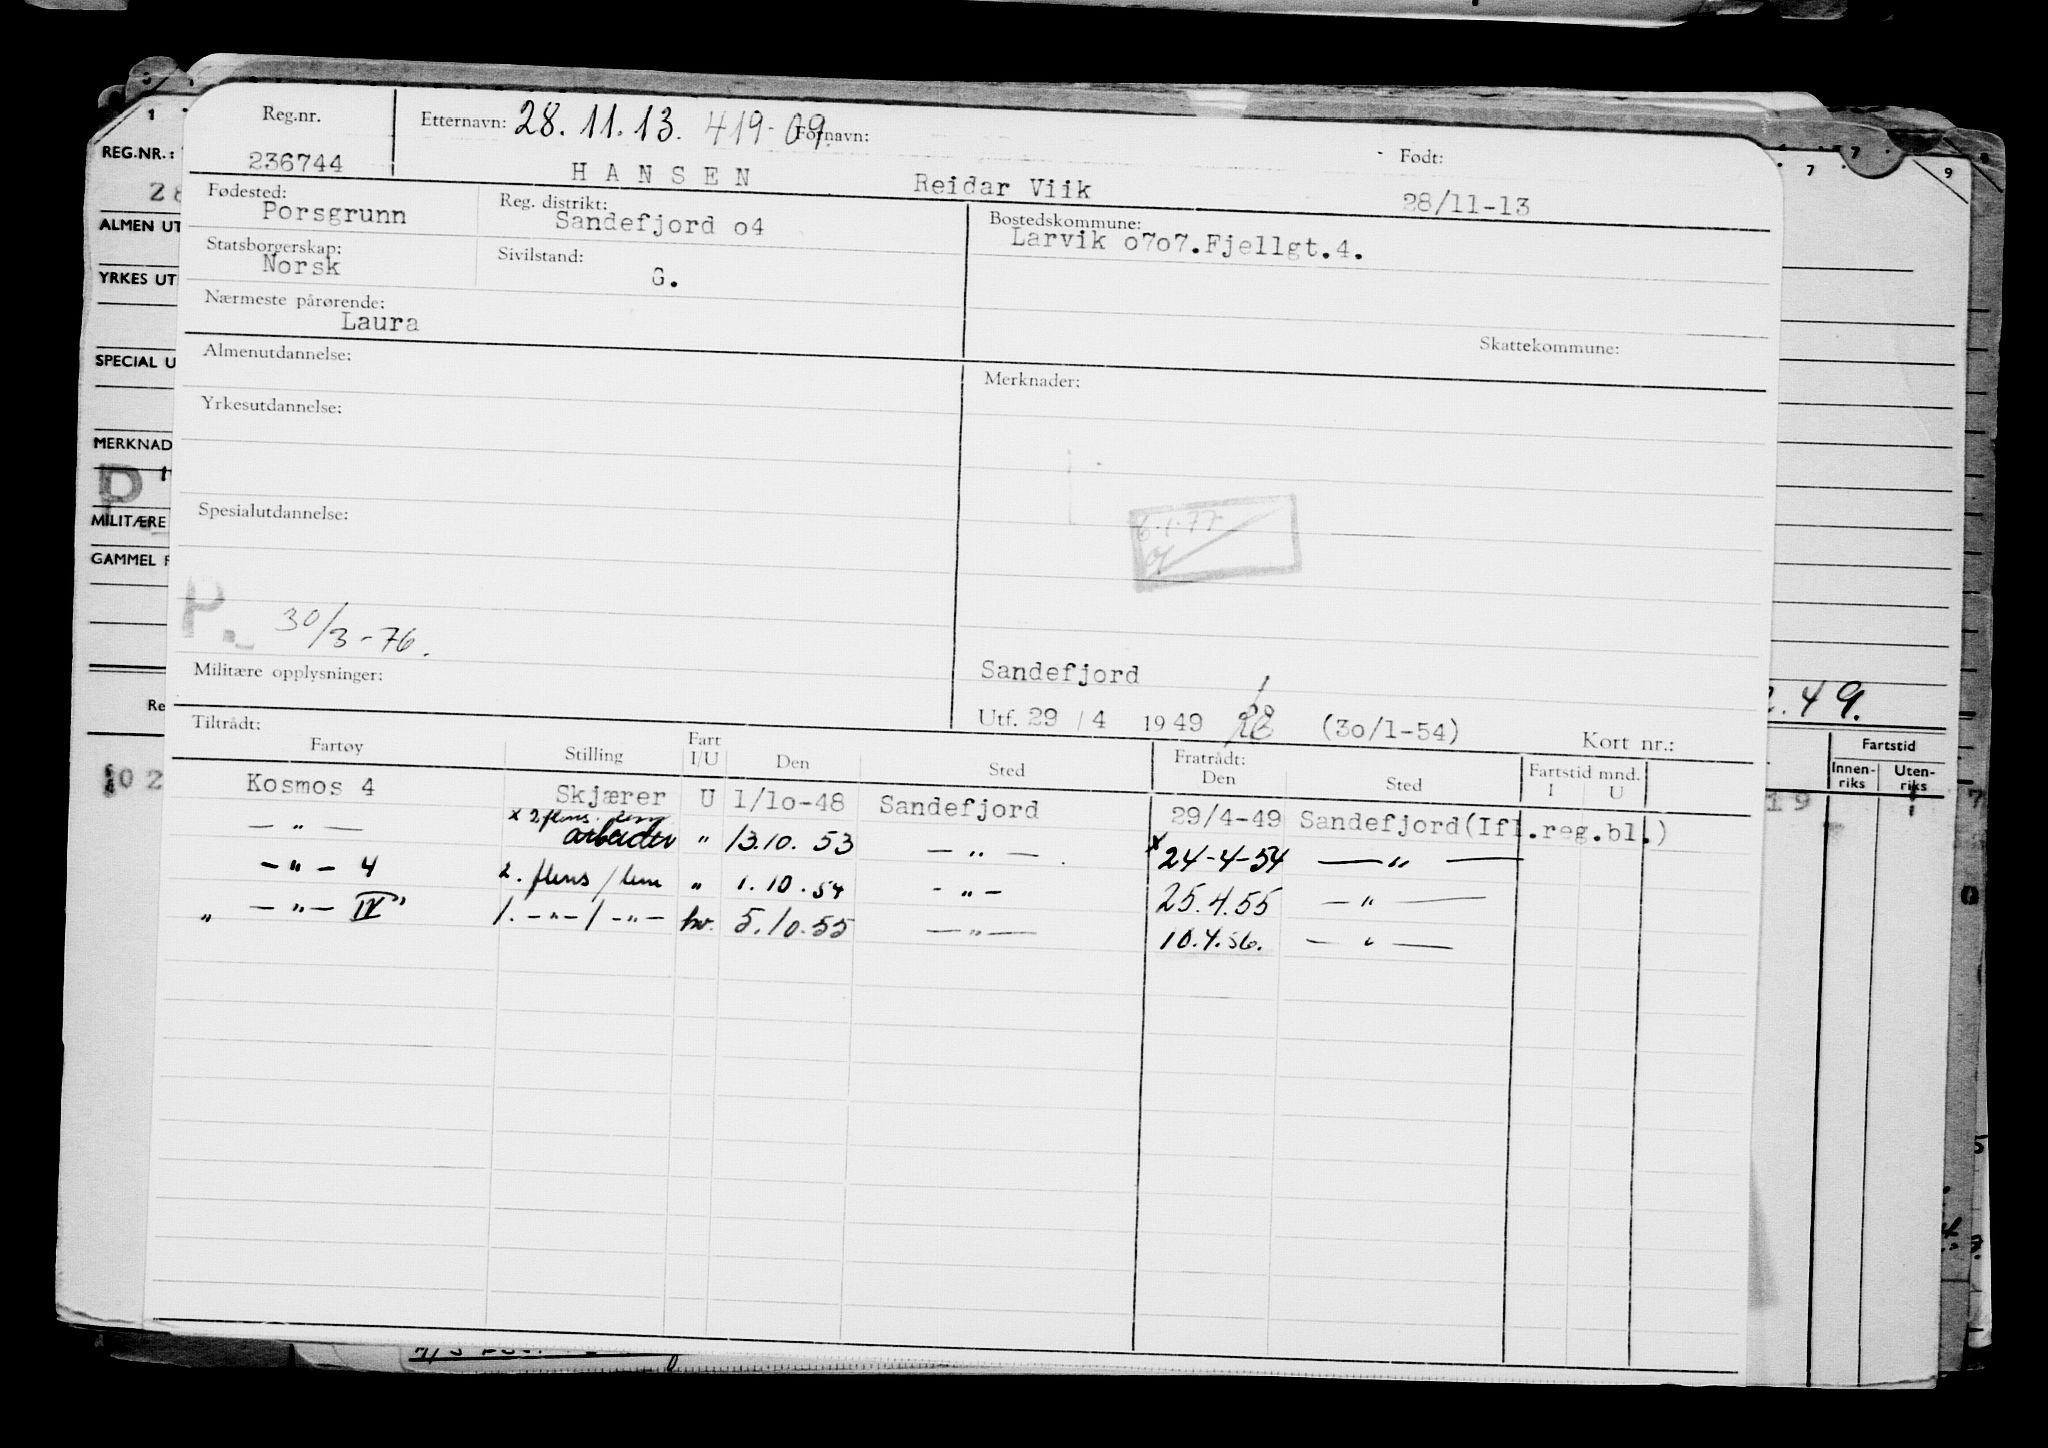 Reg.nr. Etternavn: 28.11.13. 419-09 Fornavn: Født:
236744 HANSEN Reidar Viik 28/11-13
Fødested: Reg. distrikt: Bostedskommune:
Porsgrunn Sandefjord o4 Larvik o7o7.Fjellgt.4.
Statsborgerskap: Sivilstand:
Norsk G.
Nærmeste pårørende:
Laura
Skattekommune:
Almenutdannelse: Merknader:
Yrkesutdannelse:
Spesialutdannelse:
6.1.77
P. 30/3-76.
Militære opplysninger: Sandefjord
Utf. 29 / 4 1949 (3o/1-54) Kort nr.:
Tiltrådt: Fratrådt:
Fartøy Stilling Fart I/U Den Sted Den Sted Fartstid mnd. I U
Kosmos 4 Skjærer U 1/1o-48 Sandefjord 29/4-49 Sandefjord(Ifl.reg.bl.)
x 2 flens. lem
— " — arbeider " 13.10.53 — " — x 24-4-54 — " —
— " — 4 2. flens/lem " 1.10.54 - " - 25.4.55 — " —
" — " — IV" 1. — " — / — " — hv. 5.10.55 — " — 10.4.56. — " —
1
REG.NR.:
28
ALMEN UT
YRKES UT
SPECIAL U
MERKNAD
D
MILITÆRE
GAMMEL F
Re
02
7 9
.49.
Fartstid
Innen-riks Uten-riks
19